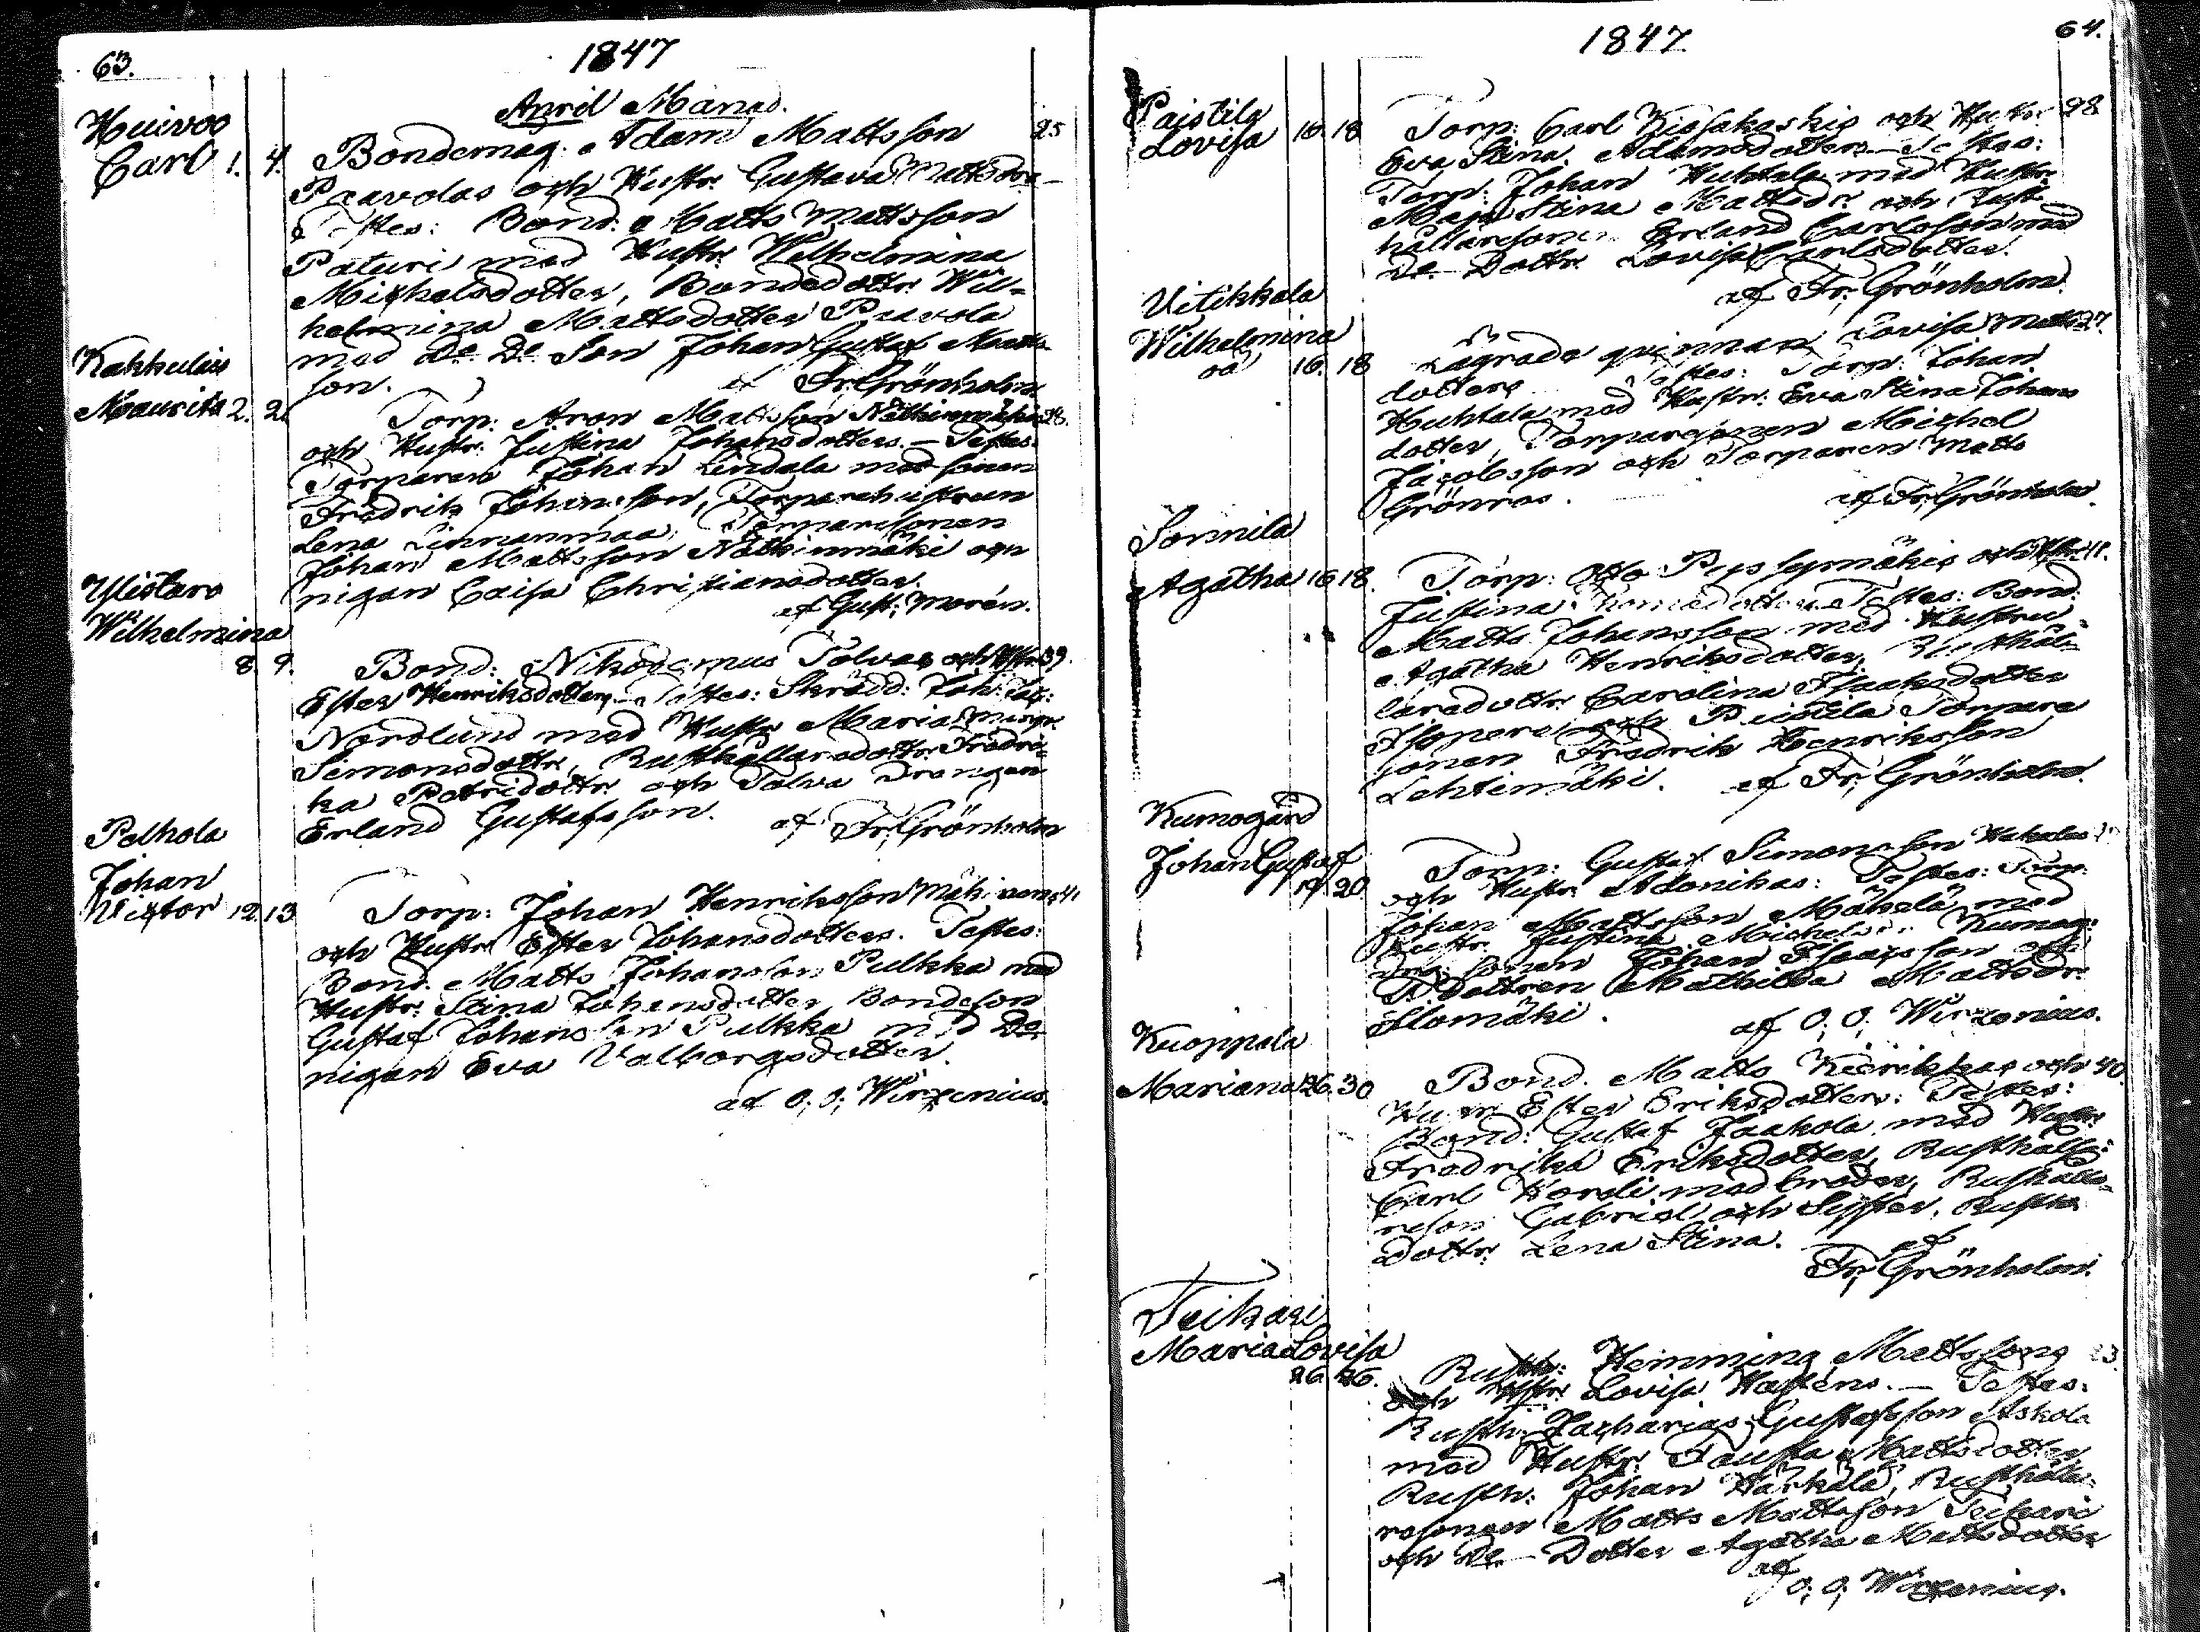 63.
1847
April Månad.
Huivoo
Carl 1. 4. Bondemåg. Adam Mattsson 25
Paavolas och Hustr. Gustava Mattsdrs –
Testes: Bond. Matts Mattsson
Paturi med Hustr. Wilhelmina
Michelsdotter, Bondedottr. Wil-
helmina Mattsdotter Paavola
med De De Son Johan Gustaf Matts-
son. af Fr. Grönholm
Kakkulais
Mauritz 2. 2. Torp. Aron Mattsson 28.
och Hustr. Justina Johansdotters. – Testes:
Torparen Johan Lindala med sonen
Fredrik Johansson, Torparehustrun
Lena Linnanmaa, Torparesonen
Johan Mattsson och
pigan Caisa Christiansdotter.
af Gust. Morén.
Ylistaro
Wilhelmina
8. 9. Bond: Nikodemus Tolvas och Hustr. 39.
Ester Henriksdotters – Testes: Skrädd: Joh:
Nordlund med Hustr. Maria Marg:
Simonsdottr, Rusthållaredottr. Fredri-
ka Petridottr och Tolva Drängen
Erland Gustafsson. af Fr. Grönholm
Pelhola
Johan
Victor 12. 13 Torp: Johan Henriksson 41
och Hustr. Ester Johansdotters. Testes:
Bond. Matts Johansson Pulkka med
Hustr. Stina Johansdotter, Bondeson
Gustaf Johansson Pulkka med De
pigan Eva Valborgsdotter.
af O. O. Wirzenius.
1847
64.
Paistila
Lovisa 16. 18 Torp. Carl och Hustr. 28
Eva Stina Adamsdotters – Testes:
Torp: Johan Huhtala med Hustr.
Maja Stina Mattsdr. och Rust-
hållaresonen Erland Carlsson med
De Dottr. Lovisa Carlsdotter.
af Fr. Grönholm.
Uitikkala
Wilhelmina
oä 16. 18 Lägrade qvinnan Lovisa Matts- 27.
dotters Testes: Torp. Johan
Huhtala med Hustr. Eva Stina Johans
dotter, Torparesonen Michel
Jacobsson och Torparen Matts
Grönroos. af Fr. Grönholm.
Sonnila
Agatha 16. 18. Torp: Otto och Hustr.
Justina Thomasdotters Testes: Bond.
Matts Johansson med Hustru
Agatha Henriksdotter, Rusthål-
laredottr. Carolina Isaaksdotter
och Torpare
sonen Fredrik Henriksson
Lehtimäki. af Fr. Grönholm.
Kumogård
Johan Gustaf
19. 20. Torp: Gustaf Simonsson
och Hustr. Adonikas: Testes: Torp:
Johan Mattsson Mäkelä med
Hustr. Justina Kumog:
sonen Johan Isaksson och
Dottren Mathilda Mattsdr.
Slomäki. af O. O. Wirzenius.
Kuoppala
Mariana 26. 30 Bond. Matts och 40.
Hustr. Ester Eriksdotters. Testes:
Bond: Gustaf Jaakola med Hustr.
Fredrika Eriksdotter, Rusthåll:
Carl Kordi med broder, Rusthålla-
reson Gabriel och Syster, Rusth.
Dottr. Lena Stina. af
Fr. Grönholm.
Teikari
Maria Lovisa
26. 26. Rusth: Hemming Mattssons 23.
och Hustr. Lovisa Hasténs. – Testes:
Rusth: Zacharias Gustafsson Askola
med Hustr. Fausta Mattsdotter
Rusth: Johan Härkälä, Rusthålla-
resonen Matts Mattsson Teikari
och De – Dotter Agatha Mattsdotter
af
O. O. Wirzenius.